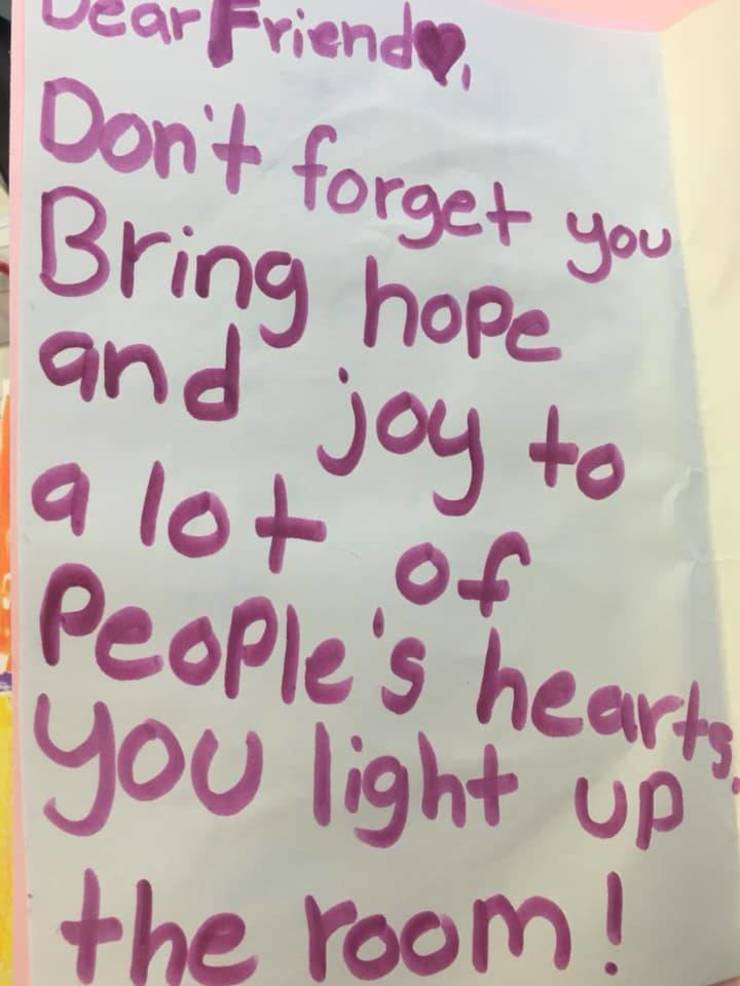 Dear Friend♥,
Don't forget you
Bring hope
and joy to
a lot of
People's hearts.
you light up
the room!